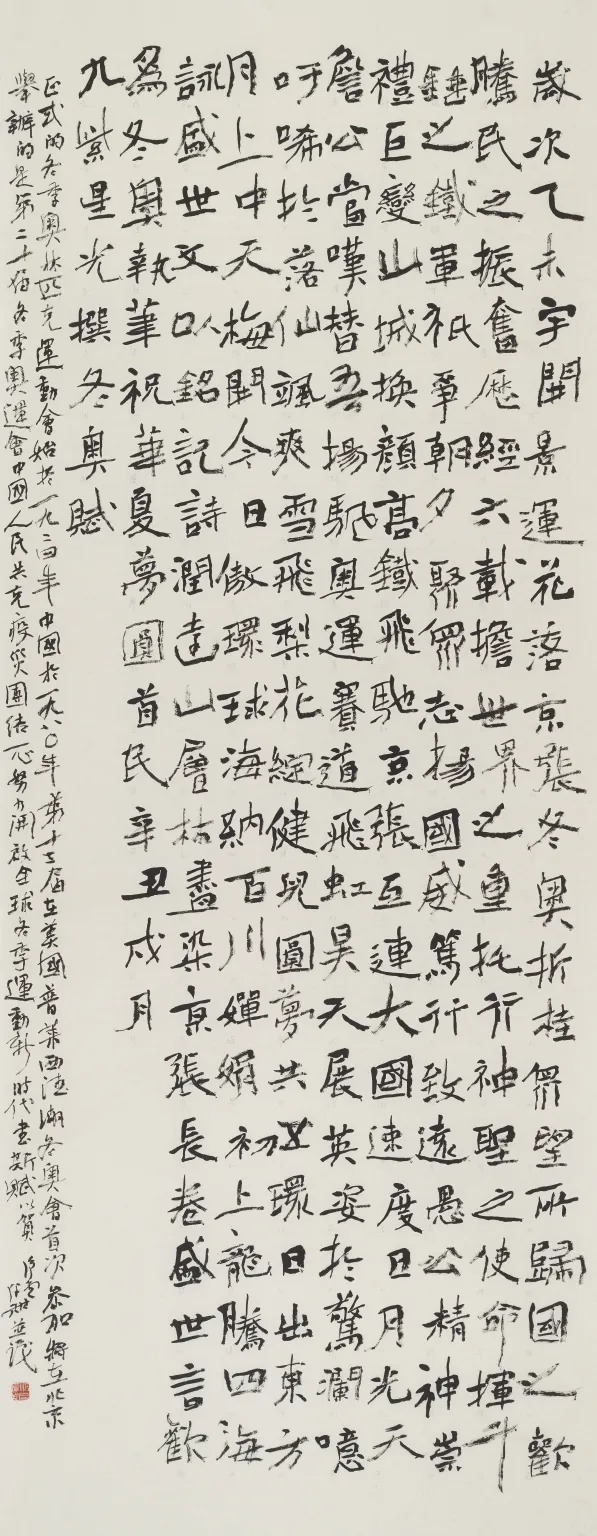 歲次乙未宇開景運花落京張冬奧折桂眾望所歸國之歡
騰民之振奮歷經六載擔世界之重托行神聖之使命揮斗
之鐵軍祇爭朝夕聚眾志揚國威篤行致遠愚公精神崇
禮巨變山城換顏高鐵飛馳京張互連大國速度日月光天
詹公當嘆替吾揚馳奧運賽道飛虹昊天展英姿於驚瀾噫
吁唏於落仙颯爽雪飛梨花綻健兒圓夢共五環日出東方
月上中天梅開今日傲環球海納百川嬋娟初上龍騰四海
詠盛世文以銘記詩潤達山層林盡染京張長卷盛世言歡
為冬奧執筆祝華夏夢圓首民辛丑戌月
九紫星光撰冬奧賦
正式的冬季奧林匹克運動會始於一九二四年中國於一九八〇年第十三屆在美國普萊西德湖冬奧會首次參加將在北京
舉辦的是第二十四屆冬季奧運會中國人民共克疫災團結一心努力開啟全球冬季運動新時代書斯賦以賀